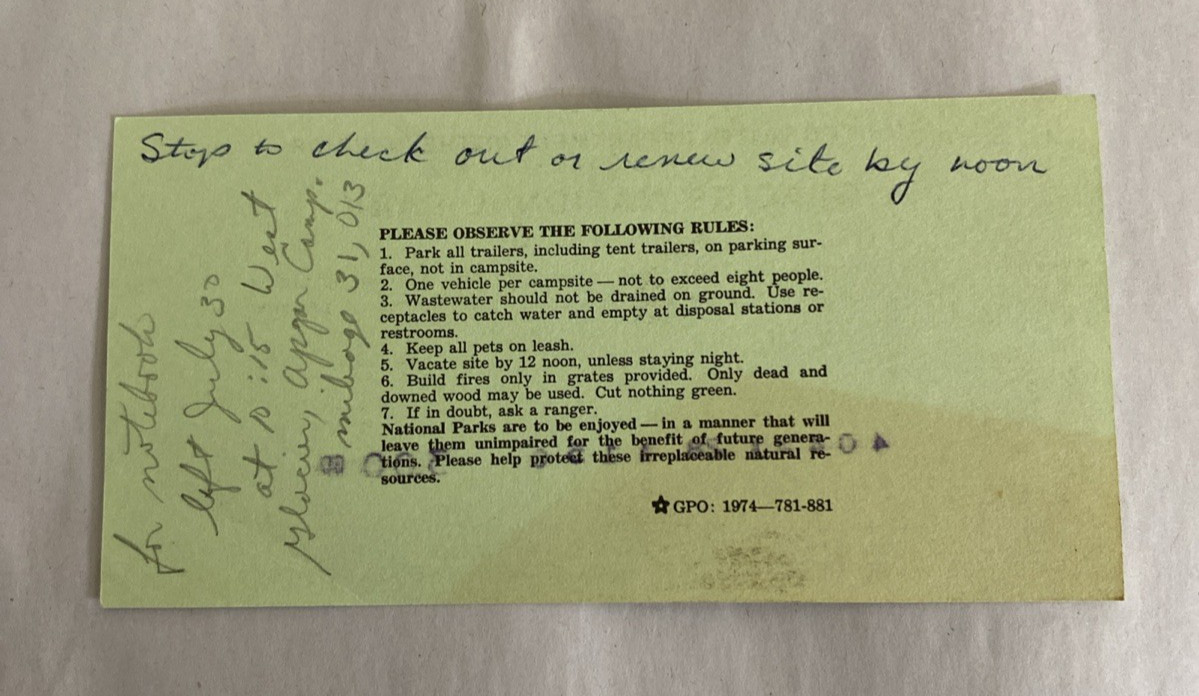 Stop to check out or renew site by noon
for notebook
left July 30
at 10:15 West
Glacier, Apgar Camp.
mileage 31,013
PLEASE OBSERVE THE FOLLOWING RULES:
1. Park all trailers, including tent trailers, on parking sur-
face, not in campsite.
2. One vehicle per campsite — not to exceed eight people.
3. Wastewater should not be drained on ground. Use re-
ceptacles to catch water and empty at disposal stations or
restrooms.
4. Keep all pets on leash.
5. Vacate site by 12 noon, unless staying night.
6. Build fires only in grates provided. Only dead and
downed wood may be used. Cut nothing green.
7. If in doubt, ask a ranger.
National Parks are to be enjoyed — in a manner that will
leave them unimpaired for the benefit of future genera-
tions. Please help protect these irreplaceable natural re-
sources.
☆ GPO: 1974—781-881